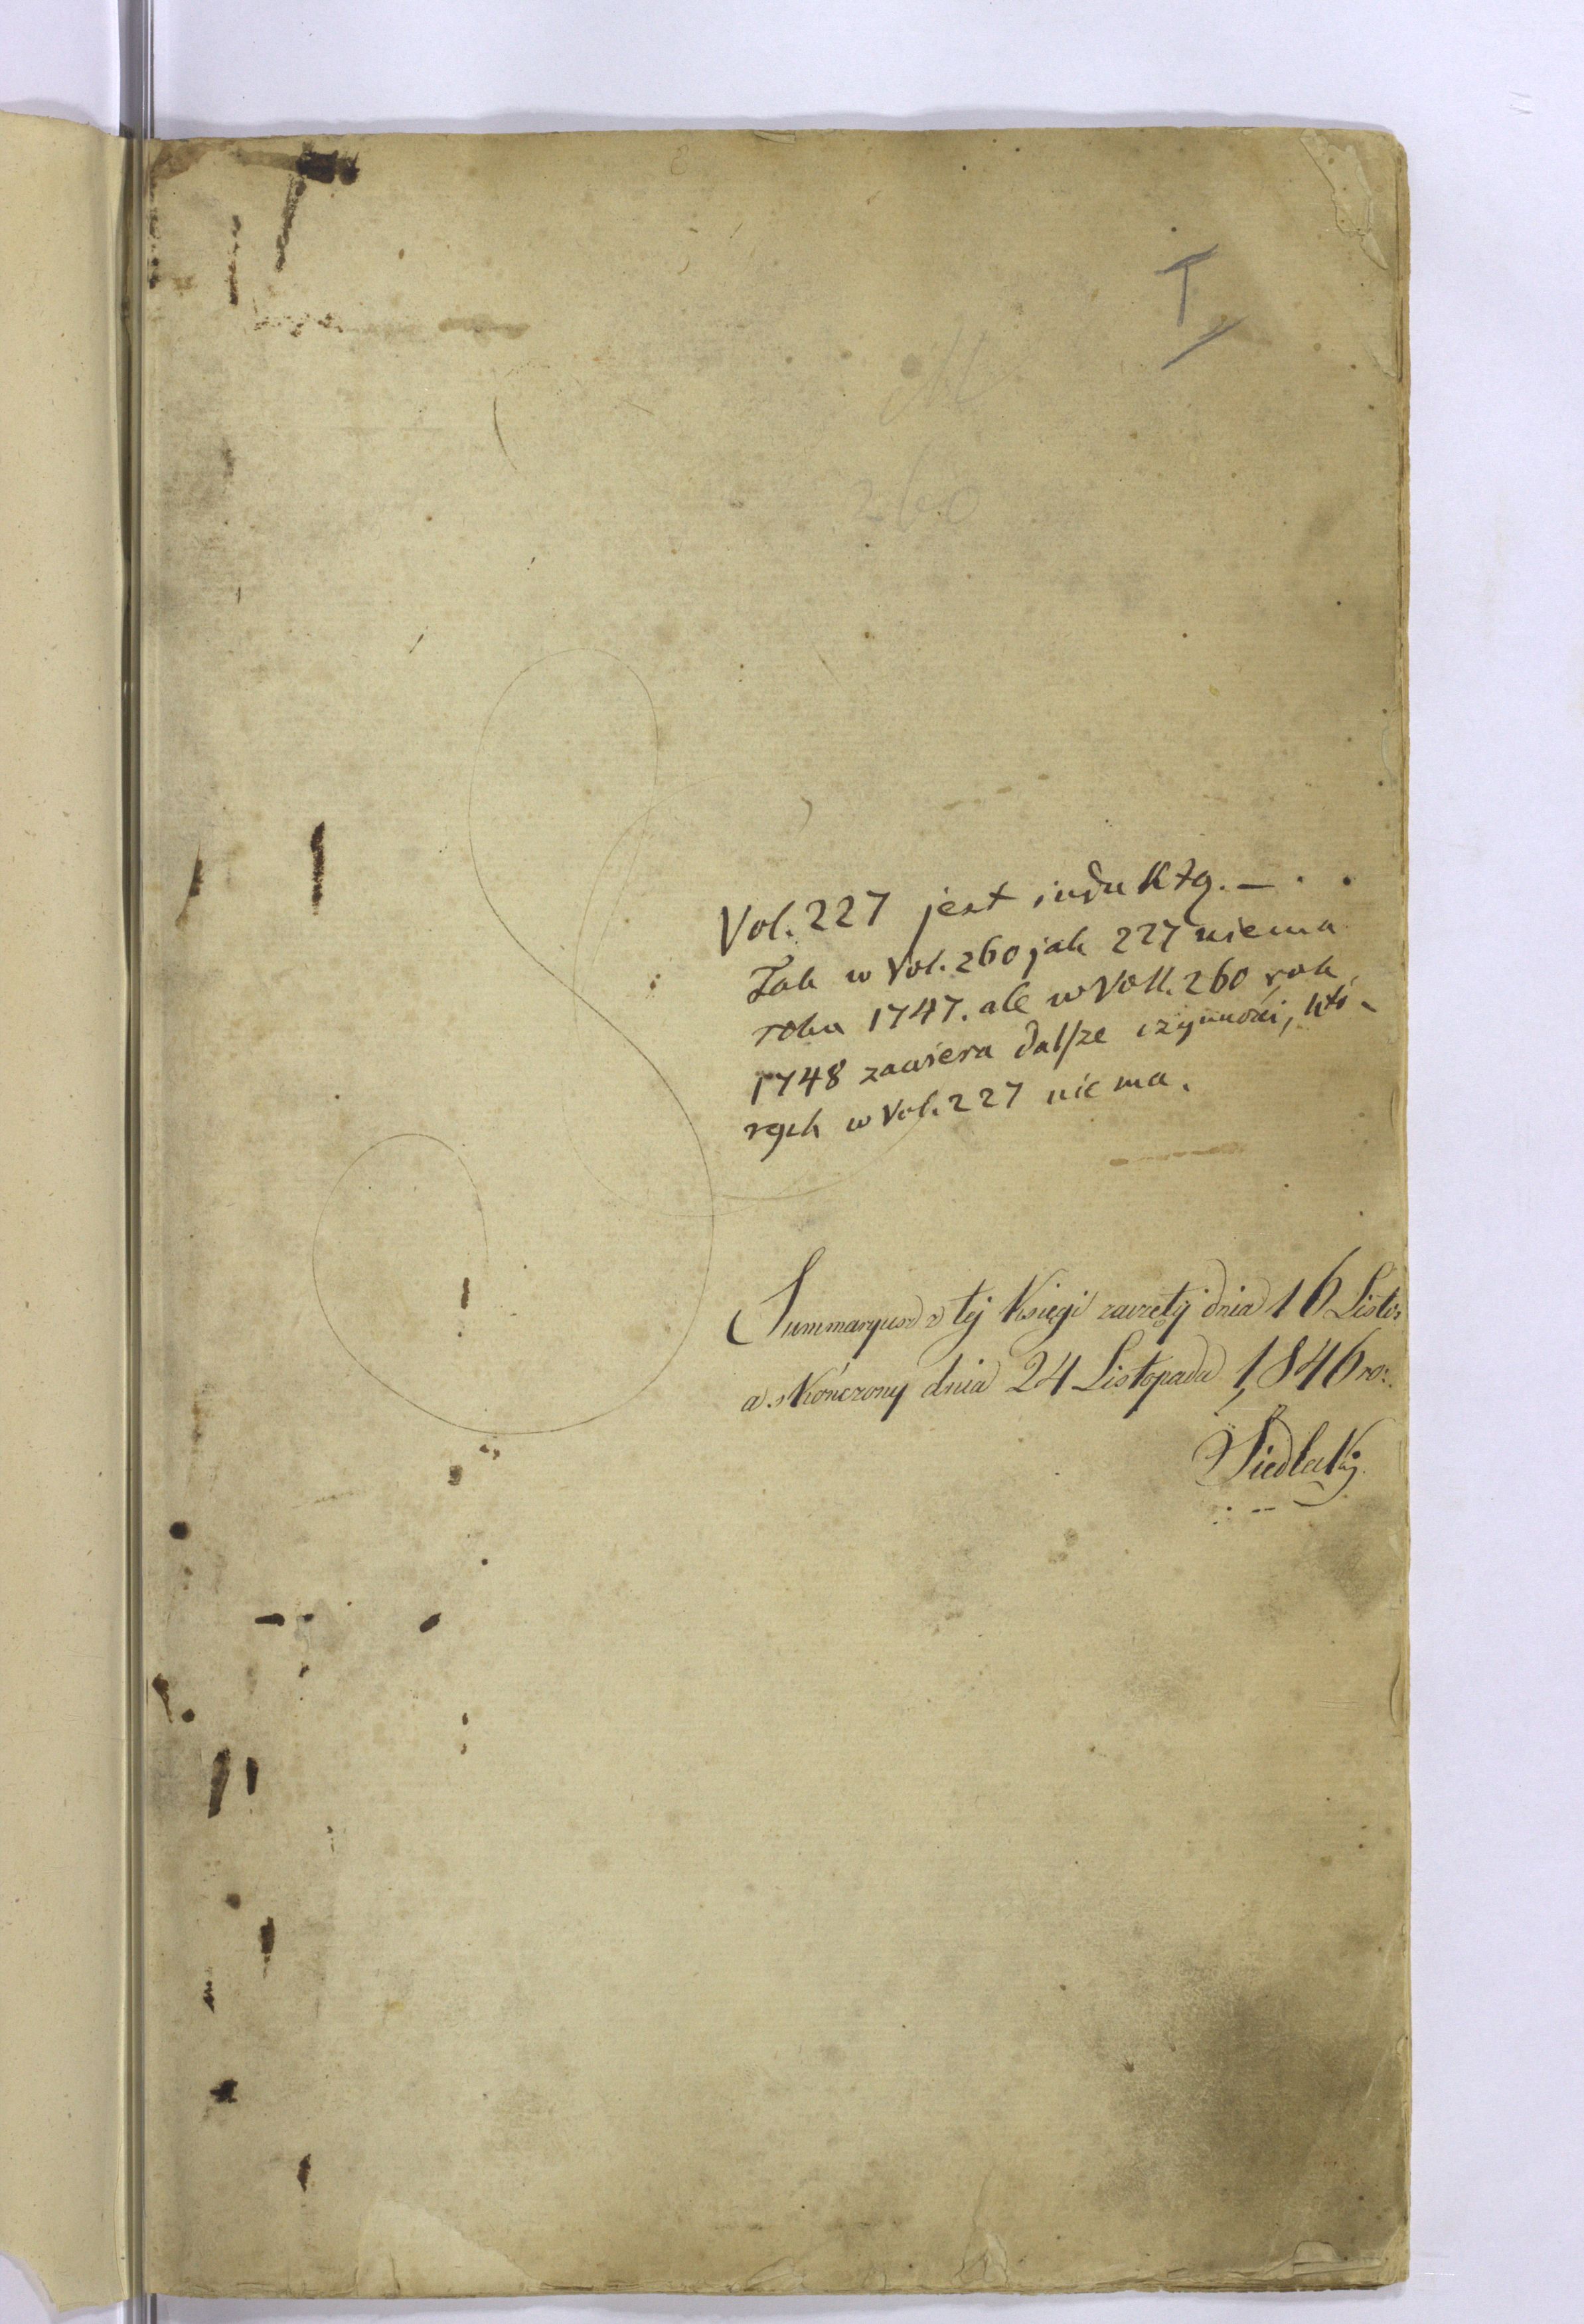 T
260
Vol. 227 jest induktą. — . .
Tak w Vol. 260 jak 227 niema
roku 1747. ale w Voll. 260 rok
1748 zawiera dalſze czynności, któ-
rych w Vol. 227 nie ma.
Summaryusz z tej Księgi zaczęty dnia 16 Listo:
a skończony dnia 24 Listopada 1846 ro:.